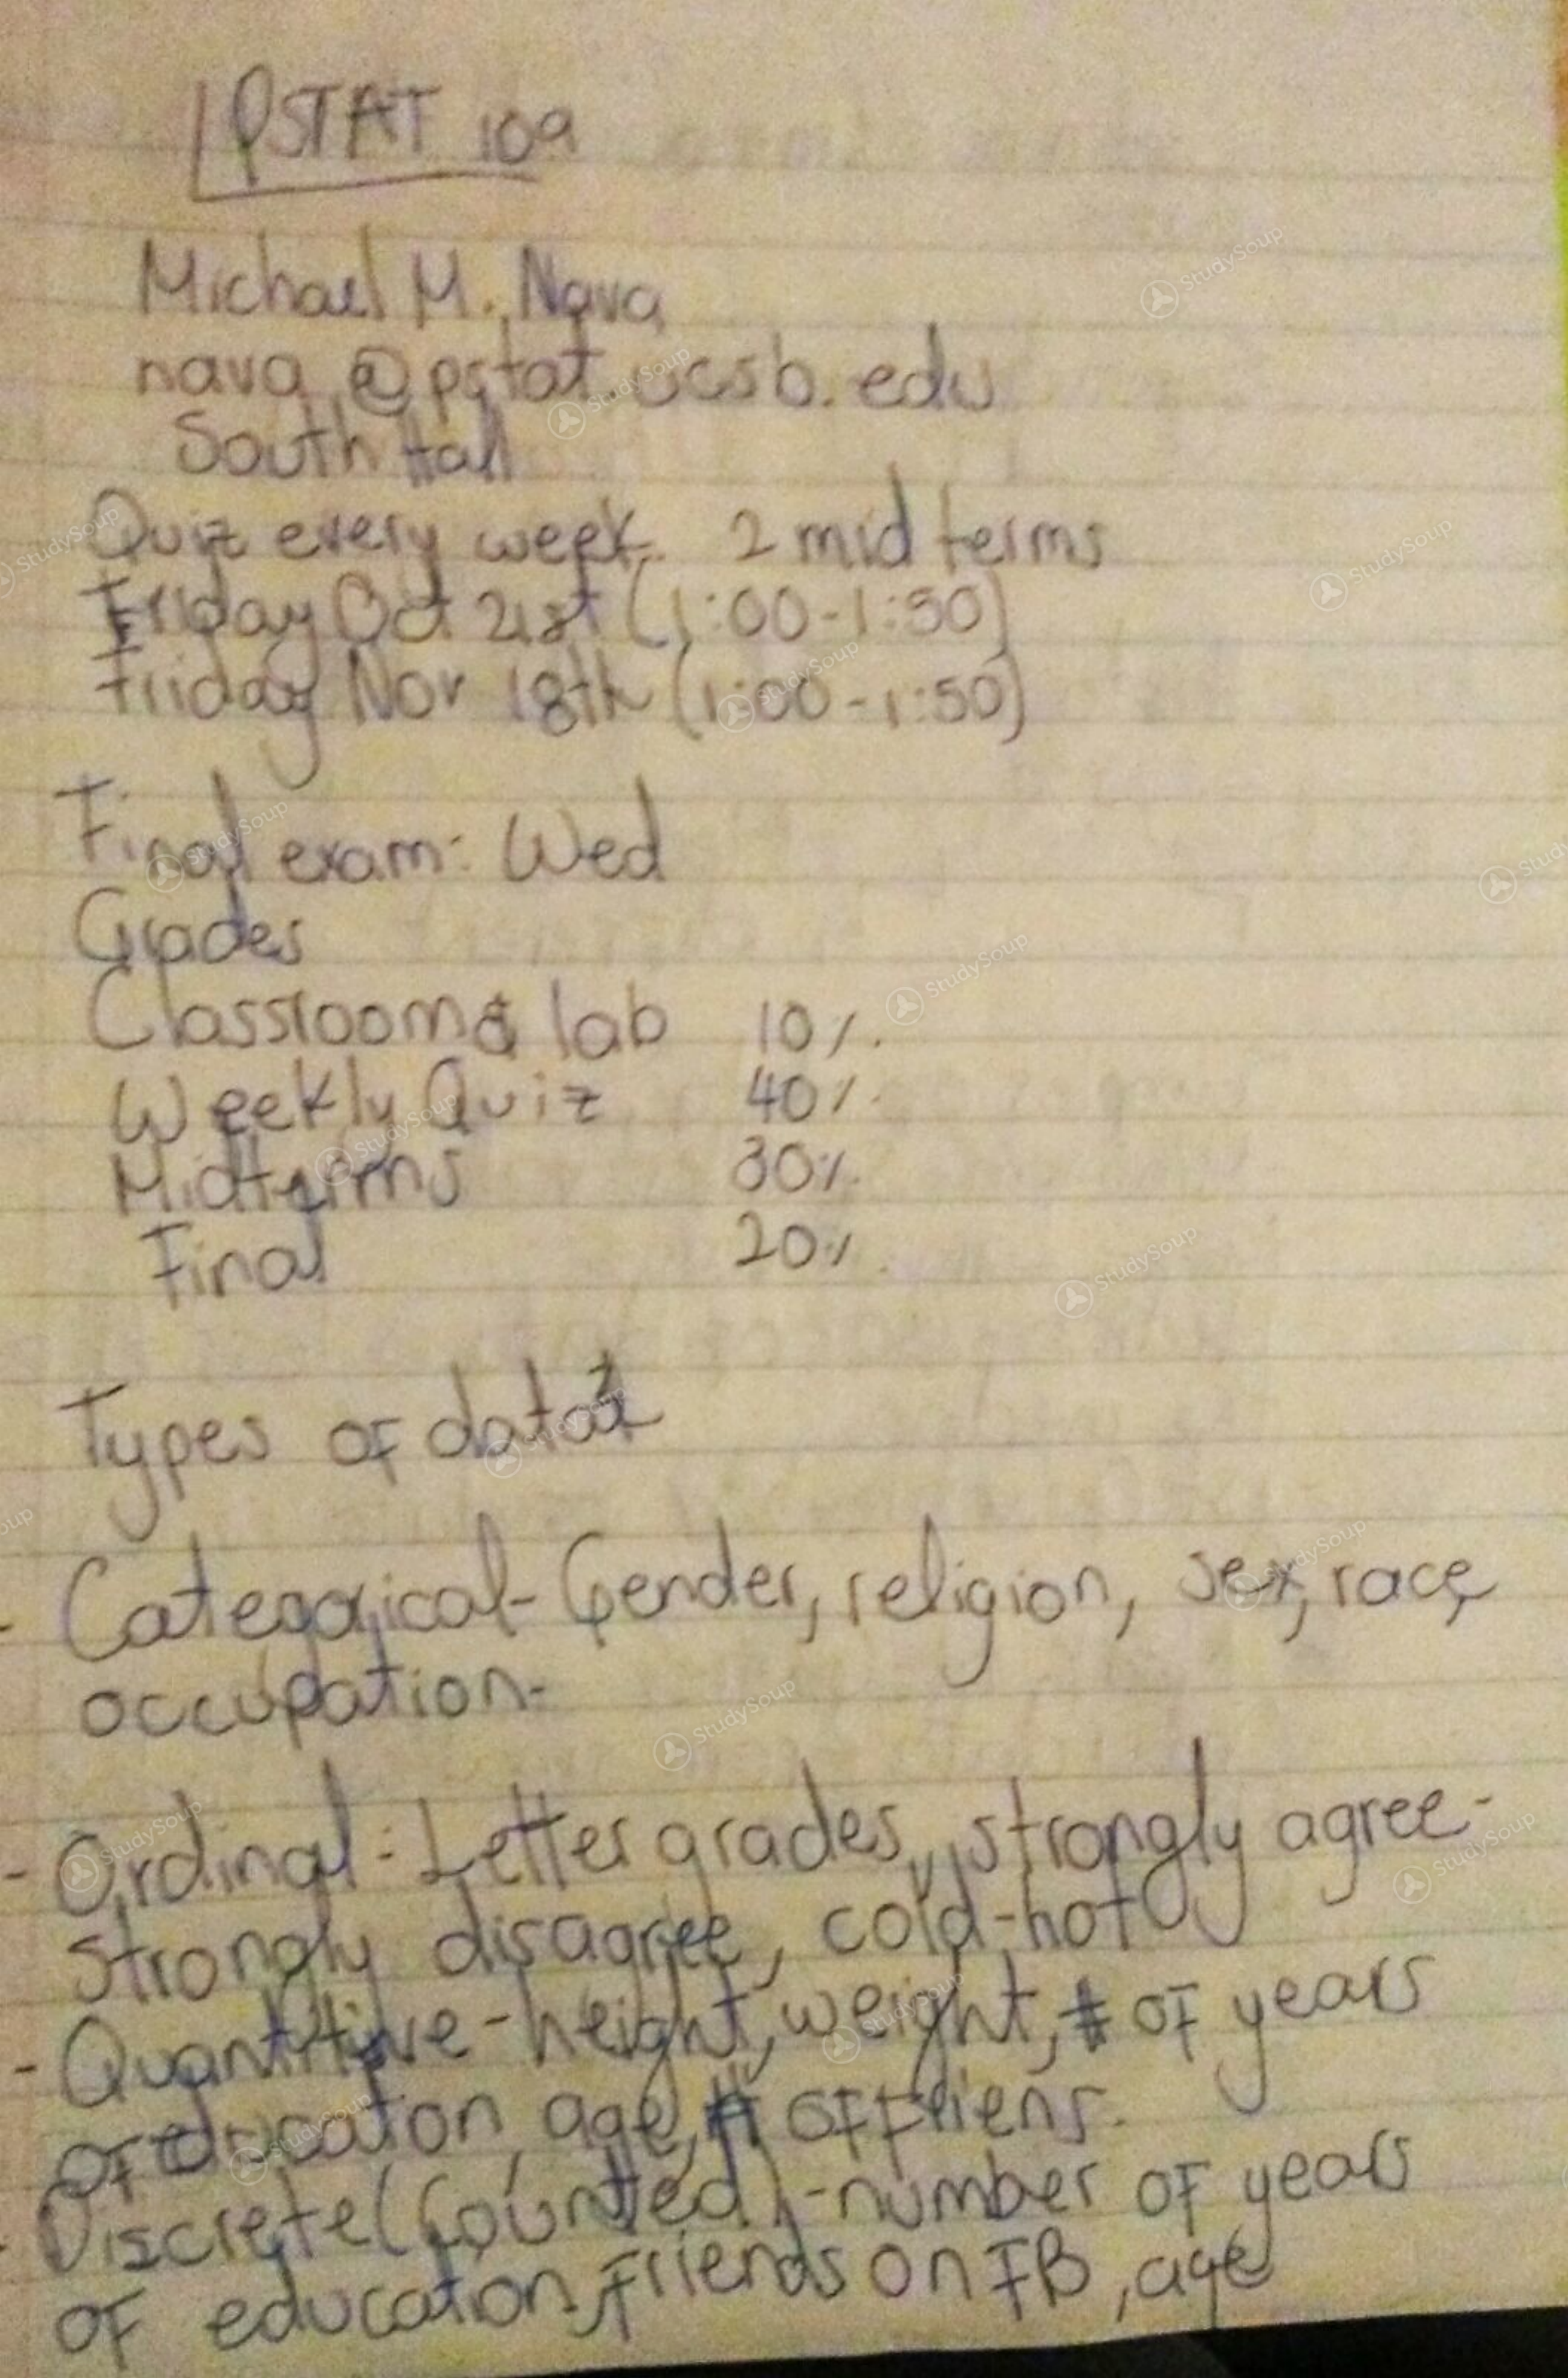 PSTAT 109
Michael M. Nava
nava@pstat.ucsb.edu
South Hall
Quiz every week 2 midterms
Friday Oct 21st (1:00-1:50)
Friday Nov 18th (1:00-1:50)
Final exam: Wed
Grades
Classroom & lab 10%
Weekly Quiz 40%
Midterms 30%
Final 20%
Types of data
- Categorical- Gender, religion, sex, race,
occupation-
- Ordinal: Letter grades, strongly agree-
strongly disagree, cold-hot
- Quantitive-height, weight, # of years
of educaton, age, # of friens.
- Discrete (Counted)-number of years
of education, friends on FB, age
StudySoup